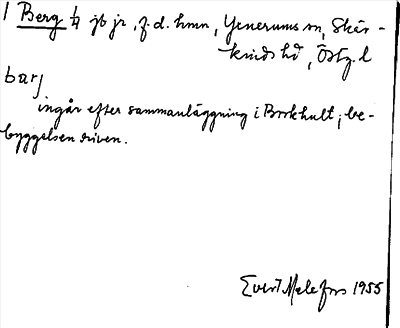 1 Berg ¼ jb jr, f.d. hmn, Yxnerums sn, Skär-
kinds hd, Östg. l
barj
ingår efter sammanläggning i Borkhult; be-
byggelsen riven.
Evert Melefors 1955